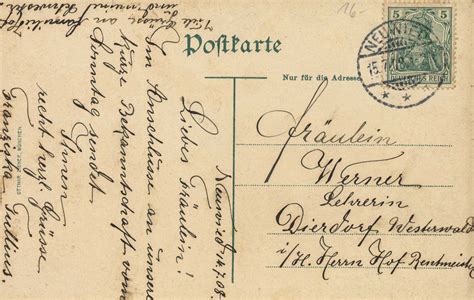 Postkarte
Nur für die Adresse
5 5
DEUTSCHES REICH
NEUWIED
15.7.08
* *
16-
Fräulein
Werner
Lehrerin
Dierdorf Westerwald
i/H. Herrn Hof Rentmeister
Neuwied 14.7.08
Liebes Fräulein!
Im Anschlusse an unsere
kurze Bekanntschaft vom
Sonntag sendet
Ihnen
recht herzl. Grüsse
Franziska
Viele Grüsse an
und meine Schwester
OTTMAR ZIEHER, MÜNCHEN